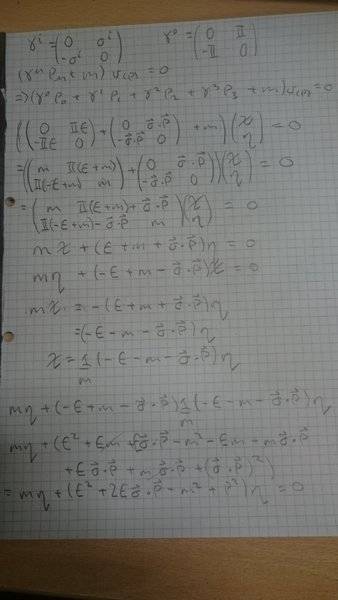 γ^i = (0 σ^i
-σ^i 0) γ^0 = (0 𝟙
-𝟙 0)
(γ^μ P_μ + m) ψ(p) = 0
=> (γ^0 P_0 + γ^1 P_1 + γ^2 P_2 + γ^3 P_3 + m) ψ(p) = 0
((0 𝟙ε
-𝟙ε 0) + (0 σ⃗·p⃗
-σ⃗·p⃗ 0) + m) (χ
η) = 0
= ((m 𝟙(ε+m)
𝟙(-ε+m) m) + (0 σ⃗·p⃗
-σ⃗·p⃗ 0)) (χ
η) = 0
= (m 𝟙(ε+m)+σ⃗·p⃗
𝟙(-ε+m)-σ⃗·p⃗ m) (χ
η) = 0
mχ + (ε + m + σ⃗·p⃗)η = 0
mη + (-ε + m - σ⃗·p⃗)χ = 0
mχ = -(ε + m + σ⃗·p⃗)η
= (-ε - m - σ⃗·p⃗)η
χ = 1/m (-ε - m - σ⃗·p⃗)η
mη + (-ε + m - σ⃗·p⃗) 1/m (-ε - m - σ⃗·p⃗)η
mη + (ε² + εm + εσ⃗·p⃗ - m² - εm - mσ⃗·p⃗
+ εσ⃗·p⃗ + mσ⃗·p⃗ + (σ⃗·p⃗)²)
= mη + (ε² + 2εσ⃗·p⃗ - m² + p⃗²)η = 0